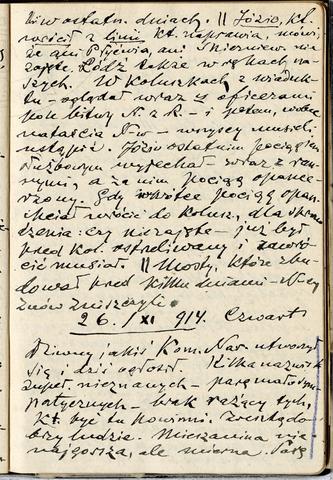 w ostatn. dniach. || Józio, kt.
wrócił z linii kt. naprawia, mówi,
że ani Piljewia, ani Skierniew. nie
zajęte. Łódź także w rękach na-
szych. W Koluszkach z wiaduk-
tu oglądał wraz z oficerami
pole bitwy N. z R. - i potem, wobec
natarcia N-w - wszyscy musieli
ustąpić. Józio ostatnim pociągiem
służbowym wyjechał - wraz z ran-
nymi, a za nim pociąg opance-
rzony. Gdy wkrótce pociąg opan.
chciał wrócić do Kolusz., dla spraw
dzenia: czy nie zajęte - już był
przed Kol. ostrzeliwany i zawró-
cić musiał. || Mosty, które zbu-
dował przed kilku dniami - N-cy
znów zniszczyli.
26. / XI 914. Czwart
Dziwny jakiś Kom. Nar. utworzył
się i dziś ogłosił. Kilka nazwisk
zupeł. nieznanych - parę mało sym-
patycznych - brak rażący tych,
kt. być tu powinni. Zresztą do-
brzy ludzie. Mieszanina nie
najgorsza, ale mierna. Parę